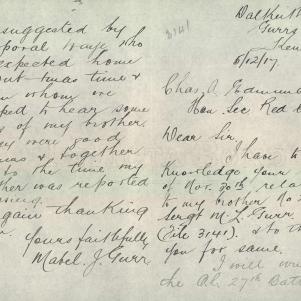 suggested by
poral Waye who
expected home
out Xmas time &
whom we
ped to hear some
of my brother.
ey were good
& together
to the time my
ther was reported
ssing.
gain thanking
Yours faithfully
Mabel J. Gurr
3141
5/12/17
Chas. A. Edmunds
Hon Sec Red
Dear Sir,
I have to
Knowledge your
of Nov. 30th, rela
to my brother No
Sergt M. L. Gurr
(File 3141). & to th
you for same.
I will wri
the 27th Batt